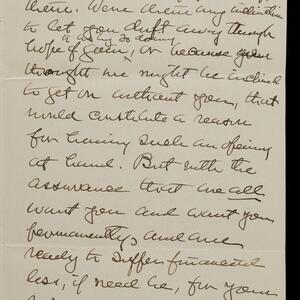 them. Were there any inclination
to let you drift away through
a long so doing
hope of gain, or because you
thought we might be inclined
to get on without you, that
would constitute a reason
for having such an opening
at hand. But with the
assurance that we all
want you and want you
permanently, and are
ready to suffer financial
loss, if need be, for your